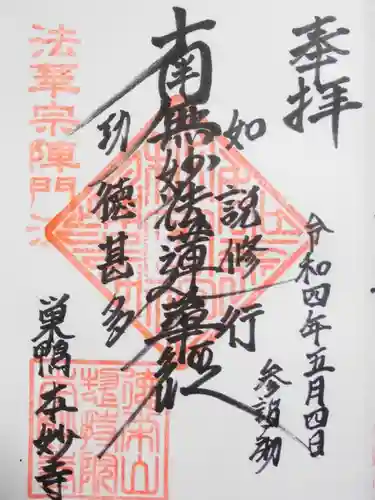 奉拝
令和四年五月四日
参詣勤
如説修行
南無妙法蓮華経
功徳甚多
巣鴨 本妙寺
法華宗陣門流